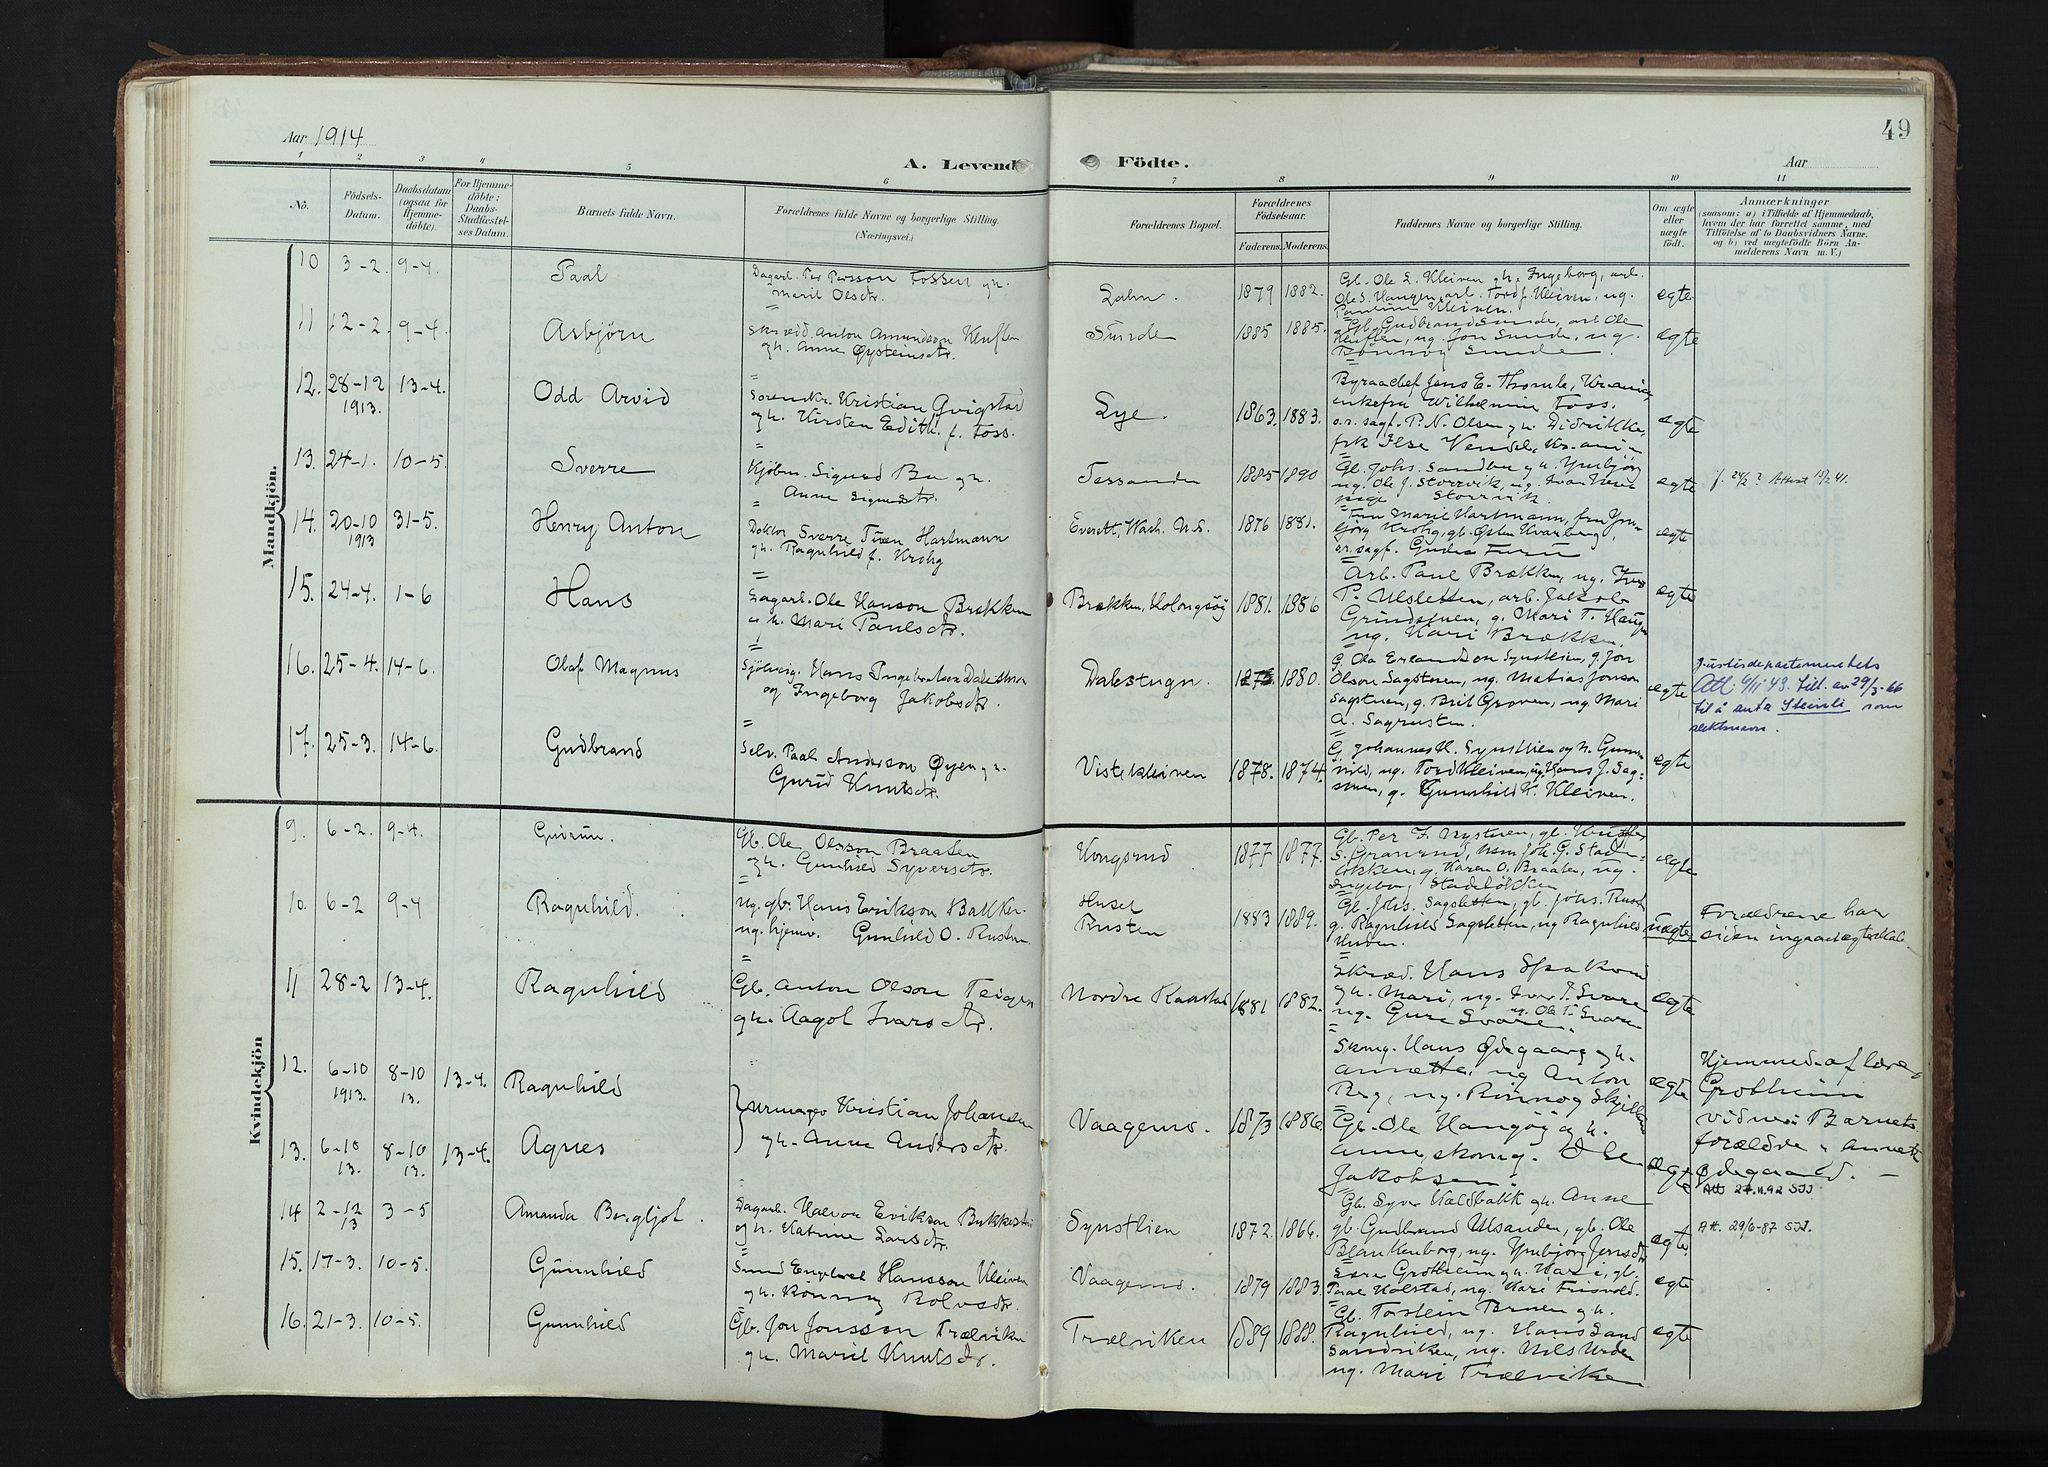 Aar 1914
49
A. Levende
Födte.
Aar
1 2 3 4 5 6 7 8 9 10 11
No.
Födsels-
Datum.
Daabsdatum
(ogsaa for
Hjemme-
döbte).
For Hjemme-
döbte:
Daabs-
Stadfæstel-
ses Datum.
Barnets fulde Navn.
Forældrenes fulde Navne og borgerlige Stilling.
(Næringsvei.)
Forældrenes Bopæl.
Forældrenes
Födselsaar.
Faderens. Moderens.
Faddernes Navne og borgerlige Stilling.
Om ægte
eller
uægte
födt.
Anmærkninger
(saasom: a) i Tilfælde af Hjemmedaab,
hvem der har forrettet samme, med
Tilföielse af to Daabsvidners Navne,
og b) ved uægtefödte Börn An-
melderens Navn m. V.)
Mandkjön.
10 3-2. 9-4. Paal
Dagarb. Per Persson Fossen gh.
Marit Olsdtr.
1879 1882.
Gb. Ole L. Kleiven gh. Ingeborg, arb.
Ole S. Haugen, arb. Tord J. Kleiven, ug.
Pauline Kleiven.
ægte.
11 12-2. 9-4. Asbjörn
Skrædd. Anton Amundson Kleften
gh. Anne Øysteinsdtr.
Sunde 1885 1885.
Gb. Gudbrand Sunde, arb. Ole
Kleften, ug. Jon Sunde, ug.
Rønnøg Sunde.
ægte
12. 28-12 1913. 13-4. Odd Arvid
Sorenskr. Kristian Qvigstad
gh. Kirsten Edith f. Foss.
Lye. 1863. 1883.
Byraachef Jens E. Thomle, Kr.ania,
enkefru Wilhelmine Foss.
o.r.sagf. P. N. Olsen gh. Didrikke,
frk Ilse Vendel, Kr.ania
ægte
13. 24-1. 10-5. Sverre
Kjöbm. Sigurd Bu gh.
Anne Sigurdsdtr.
Tessanden 1885 1890
Gb. Johs. Sandbu gh. Ymbjörg
ug. Ole J. Storrvik, ug.
Storrvik.
ægte
14. 20-10 1913 31-5. Henry Anton
Doktor Sverre Hartmann
gh. Ragnhild f. Krohg
Everett, Wash. U.S. 1876 1881.
Fru Marie Hartmann, fru Ym-
björg Krohg, gb. Østen Kvarberg,
o.r. sagf.
ægte
15. 24-4. 1-6 Hans
Dagarb. Ole Hansson Brækken
gh. Mari Paulsdtr.
Brækken, Holongsöy 1881. 1886
Arb. Paul Brækken, ug. Iver
P. Ulsletten, arb. Jakob
Grindstuen, g. Mari T. Haugen
ug. Mari Brækken.
ægte
16. 25-4. 14-6. Olaf Magnus
og Ingeborg Jakobsdtr.
Dalestugn. 1880.
G. Ola Erlandson Synstlien, g. Jon
Olson Sagstuen, ug. Mathias Jonson
Sagstuen, g. Brit Groven, ug. Mari
A. Sagrusten.
ægte
Justisdepartementets
Att. 6/11 43. till. av 29/3-66
til å anta Steinli som
slektsnavn.
17. 25-3. 14-6. Gudbrand
Selv. Paal Anderson Øyen gh.
Gurid Knutsdtr.
Vistekleiven 1878. 1874.
G. Johannes H. Synstlien og h. Gunn-
hild, ug. Tord Kleiven, ug. Hans J. Sag-
stuen, g. Gunnhild K. Kleiven.
ægte
Kvindekjön
9. 6-2. 9-4. Gudrun.
Gb. Ole Olsson Braaten
gh. Gunhild Syversdtr.
Kongsrud 1877 1877.
Gb. Per J. Nystuen, gb.
S. Granrud, Joh. G. Stade-
løkken, g. Karen O. Braaten, ug.
Ingeborg Stadeløkken
ægte
10. 6-2 9-4 Ragnhild.
Ug. gbr. Hans Erikson Bakken.
ug. hjemv. Gunhild O. Rusten
Rusten 1883 1889.
Gb. Johs. Sagsletten, gb. Johs. Rusten
g. Ragnhild Sagsletten, ug Ragnhild
uægte
Forældrene har
siden indgaaet ægteskab.
11 28-2 13-4. Ragnhild
Gb. Anton Olson Teigen
gh. Aagot Ivarsdtr.
Nordre Raastad 1881 1882.
Skræd. Hans Spakrud
gh. Mari, ug. Ivar T. Svare
ug. Guri Svare. ug. Ole T. Svare
ægte
12. 6-10 1913. 8-10 13. 13-4. Ragnhild
Urmager Kristian Johansen
gh. Anne Andersdtr.
Vaagemo. 1873 1886.
Skomg. Hans Ødegaard gh.
Annette, ug Anton
Berg, ug.
ægte
Hjemmed. af lærer
Grotheim
vidner Barnets
forældre, Annette
Ødegaard.
13. 6-10 13. 8-10 13. 13-4. Agnes
Gb. Ole Haugøy gh.
Anne, skomg.
Jakobsen.
ægte
Att 27.11.92 SJJ
14 2-12 13 3-5 Amanda Bergljot.
Dagarb. Halvor Erikson Bukkesti
gh. Katrine Larsdtr.
Synstlien 1872. 1866.
Gb. Syver Valdbakk gh. Anne
gb. Gudbrand Ulsanden, gb. Ole
Blankenborg, ug. Ymbjörg Jensdtr
ægte
Att. 29/6-87 SJJ.
15. 17-3. 10-5. Gunnhild
Smed Engebret Hansson Kleiven
gh. Rönnøg Rolvsdtr.
Vaagemo. 1879 1883.
Lærer Grotheim gh. Mari, gb.
Paal Kolstad, ug. Kari Frisvold.
ægte
16. 21-3. 10-5. Gunnhild
Gb. Jon Jonsson Trælviken
gh. Marit Knutsdtr.
Trælviken 1889 1888.
Gb. Torstein Bruen gh.
Ragnhild, ug. Hans Sand
Sandviken, ug. Nils Urden
ug. Mari Trælviken
ægte